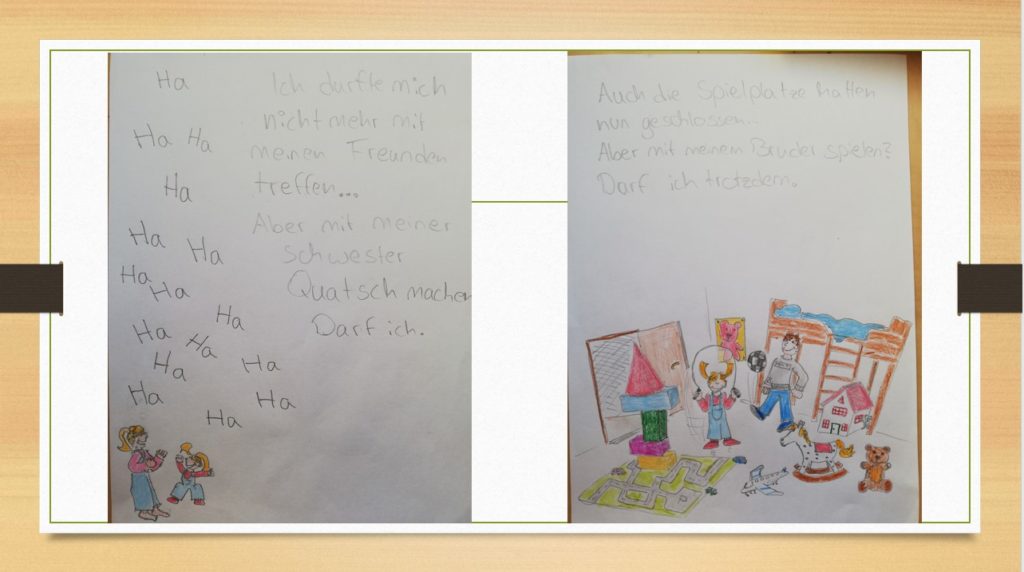 Ha
Ha Ha
Ha
Ha
Ha
Ha
Ha
Ha
Ha
Ha
Ha
Ha
Ha
Ha
Ha
Ich durfte mich
nicht mehr mit
meinen Freunden
treffen...
Aber mit meiner
Schwester
Quatsch machen
Darf ich.
Auch die Spielplätze hatten
nun geschlossen...
Aber mit meinem Bruder spielen?
Darf ich trotzdem.